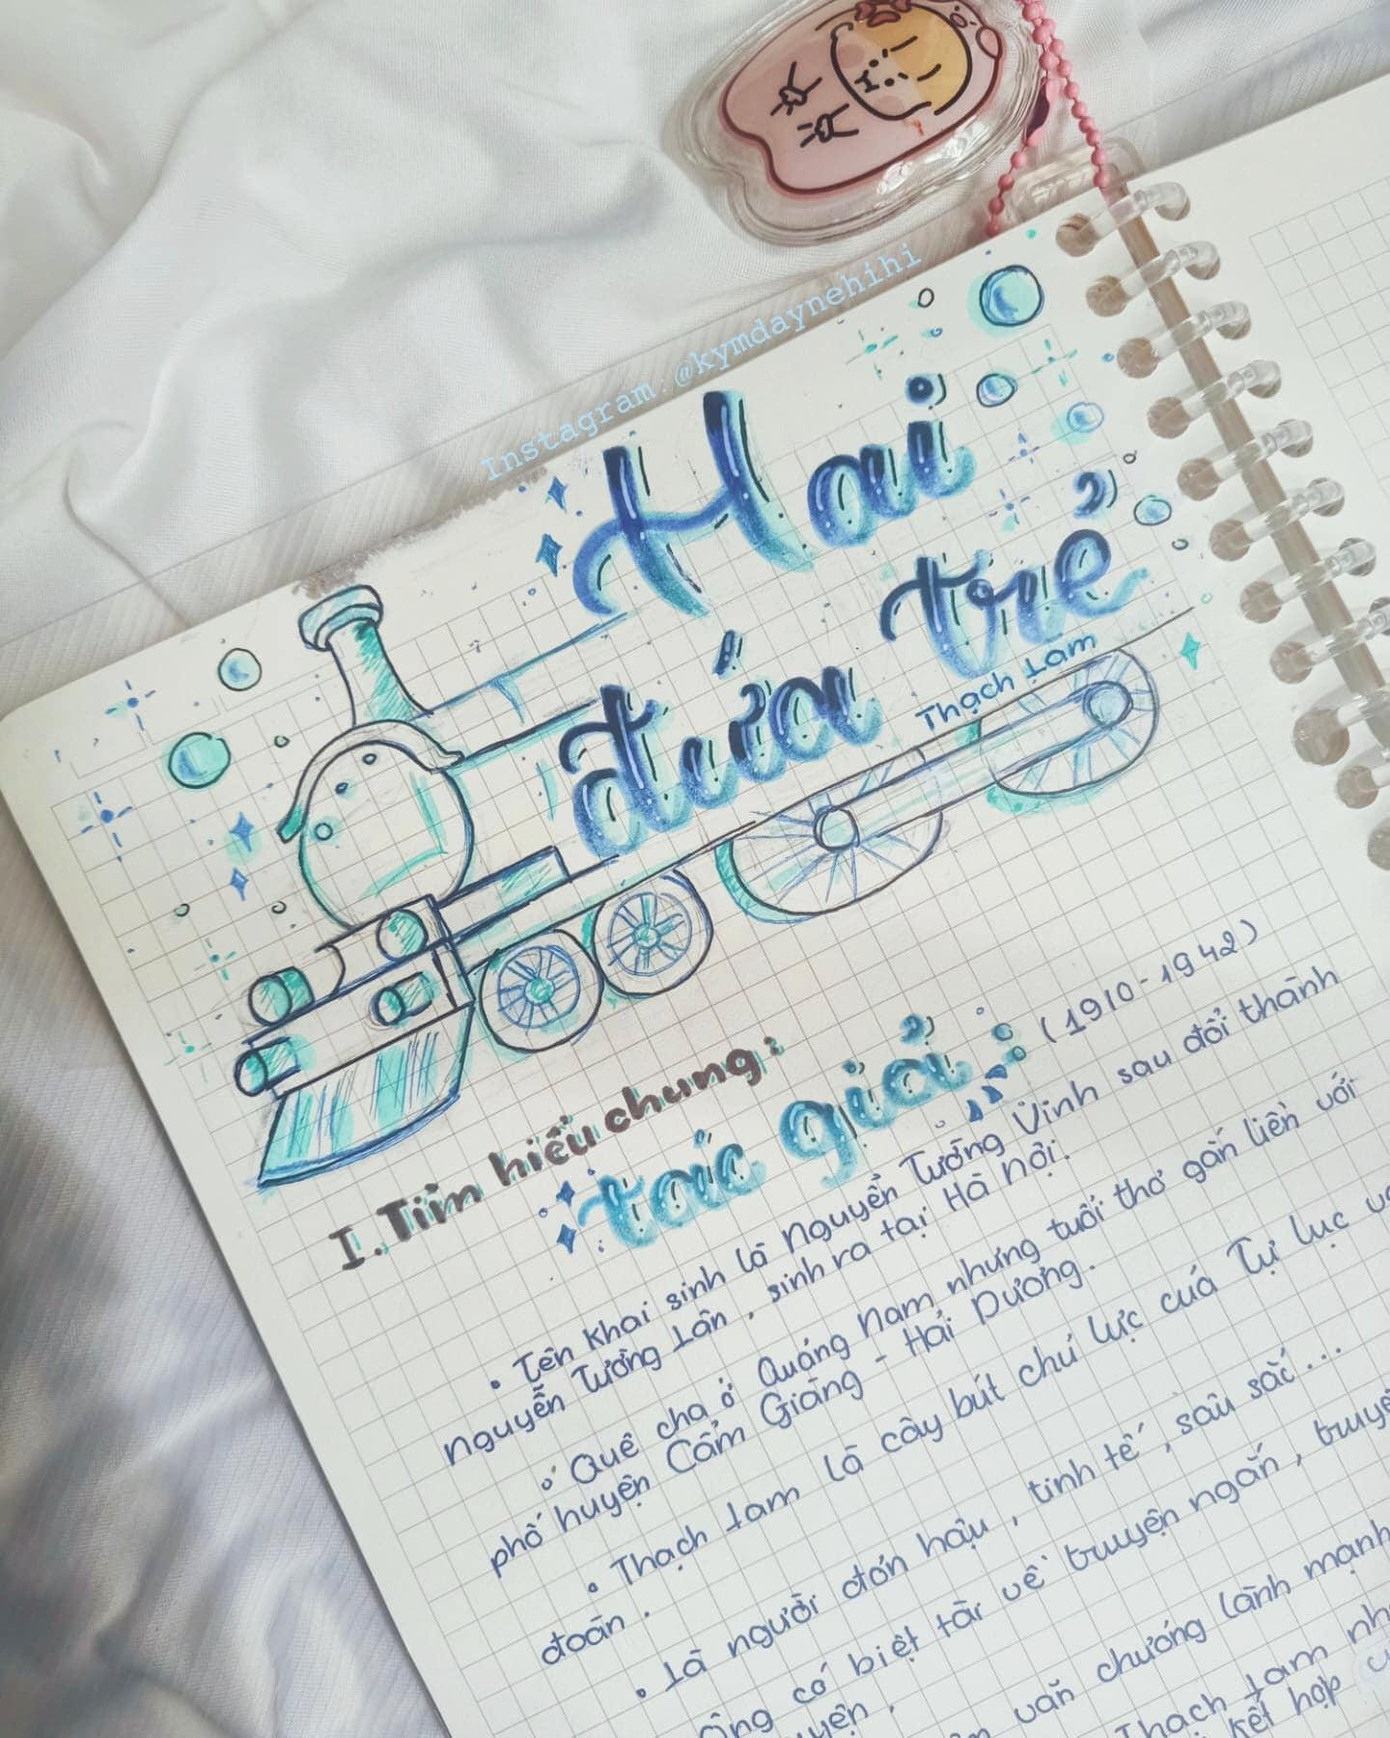 Instagram:@kymdaynehihi
Hai
đứa trẻ
Thạch Lam
I. Tìm hiểu chung:
tác giả: (1910-1942)
• Tên khai sinh là Nguyễn Tường Vinh sau đổi thành
Nguyễn Tường Lân, sinh ra tại Hà Nội.
• Quê cha ở Quảng Nam nhưng tuổi thơ gắn liền với
phố huyện Cẩm Giàng - Hải Dương.
• Thạch Lam là cây bút chủ lực của Tự lực
đoàn.
• Là người đôn hậu, tinh tế, sâu sắc...
Ông có biệt tài về truyện ngắn,
văn chương lành mạnh
Thạch Lam
kết hợp